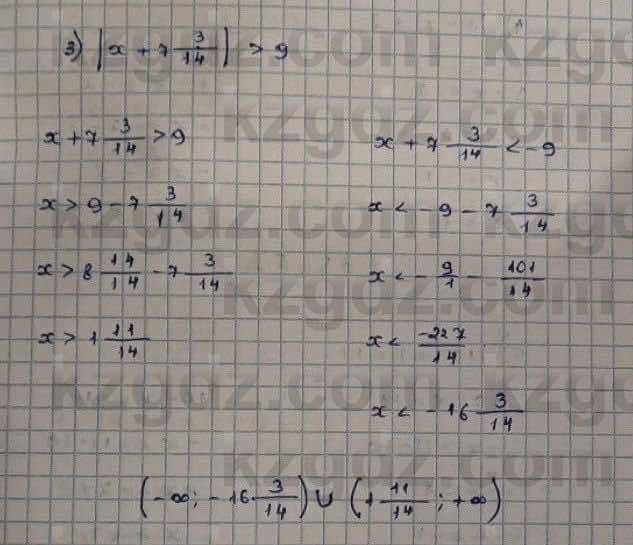 3) |x + 7 3/14| > 9
x + 7 3/14 > 9
x > 9 - 7 3/14
x > 8 14/14 - 7 3/14
x > 1 11/14
x + 7 3/14 < -9
x < -9 - 7 3/14
x < - 9/1 - 101/14
x < -227/14
x < -16 3/14
(-∞; -16 3/14) ∪ (1 11/14; +∞)
kzgdz.com